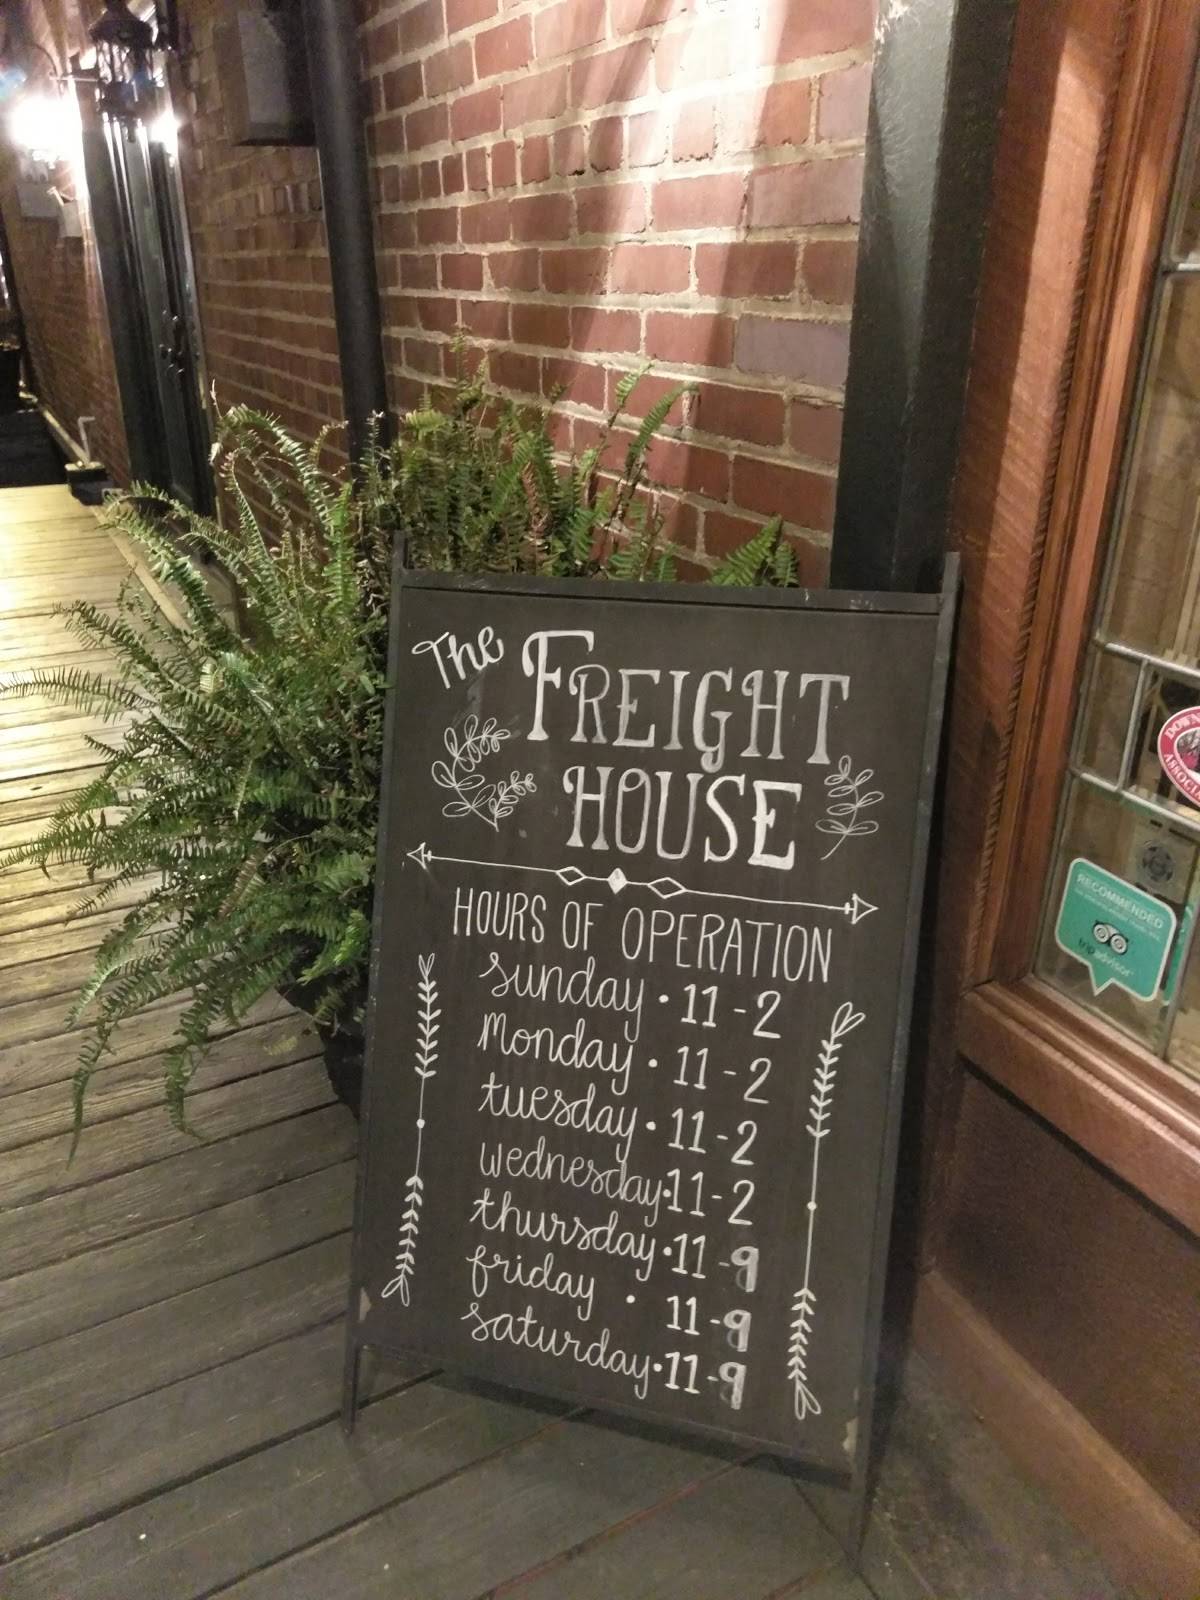 The FREIGHT
HOUSE
HOURS OF OPERATION
sunday • 11 - 2
Monday • 11 - 2
tuesday • 11 - 2
wednesday • 11 - 2
thursday • 11 - 9
friday • 11 - 9
saturday • 11 - 9
DOW
ASSOCIA
RECOMMENDED
tripadvisor